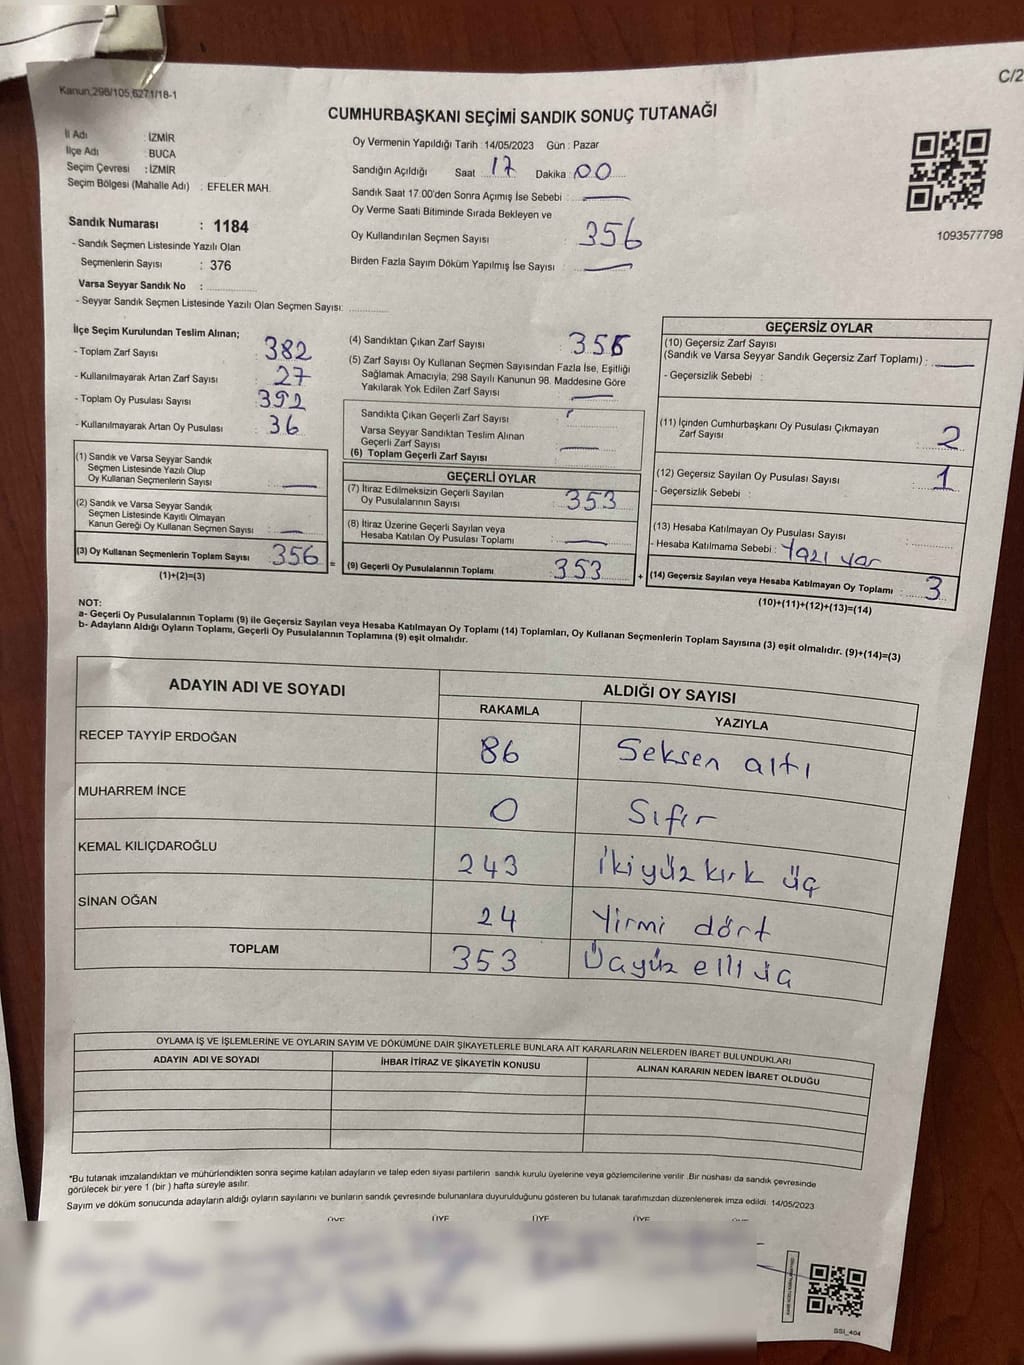 Kanun,298/105,6271/18-1
C/2
CUMHURBAŞKANI SEÇİMİ SANDIK SONUÇ TUTANAĞI
İl Adı : İZMİR
İlçe Adı : BUCA
Seçim Çevresi : İZMİR
Seçim Bölgesi (Mahalle Adı) : EFELER MAH.
Sandık Numarası : 1184
- Sandık Seçmen Listesinde Yazılı Olan
Seçmenlerin Sayısı : 376
Varsa Seyyar Sandık No :
- Seyyar Sandık Seçmen Listesinde Yazılı Olan Seçmen Sayısı:
Oy Vermenin Yapıldığı Tarih : 14/05/2023 Gün : Pazar
Sandığın Açıldığı Saat 17 Dakika : 00
Sandık Saat 17:00'den Sonra Açımış İse Sebebi :
Oy Verme Saati Bitiminde Sırada Bekleyen ve
Oy Kullandırılan Seçmen Sayısı : 356
Birden Fazla Sayım Döküm Yapılmış İse Sayısı :
1093577798
İlçe Seçim Kurulundan Teslim Alınan;
- Toplam Zarf Sayısı : 382
- Kullanılmayarak Artan Zarf Sayısı : 27
- Toplam Oy Pusulası Sayısı : 392
- Kullanılmayarak Artan Oy Pusulası : 36
(1) Sandık ve Varsa Seyyar Sandık
Seçmen Listesinde Yazılı Olup
Oy Kullanan Seçmenlerin Sayısı :
(2) Sandık ve Varsa Seyyar Sandık
Seçmen Listesinde Kayıtlı Olmayan
Kanun Gereği Oy Kullanan Seçmen Sayısı :
(3) Oy Kullanan Seçmenlerin Toplam Sayısı : 356
(1)+(2)=(3)
(4) Sandıktan Çıkan Zarf Sayısı : 356
(5) Zarf Sayısı Oy Kullanan Seçmen Sayısından Fazla İse, Eşitliği
Sağlamak Amacıyla, 298 Sayılı Kanunun 98. Maddesine Göre
Yakılarak Yok Edilen Zarf Sayısı :
Sandıkta Çıkan Geçerli Zarf Sayısı :
Varsa Seyyar Sandıktan Teslim Alınan
Geçerli Zarf Sayısı :
(6) Toplam Geçerli Zarf Sayısı :
GEÇERLİ OYLAR
(7) İtiraz Edilmeksizin Geçerli Sayılan
Oy Pusulalarının Sayısı : 353
(8) İtiraz Üzerine Geçerli Sayılan veya
Hesaba Katılan Oy Pusulası Toplamı :
= (9) Geçerli Oy Pusulalarının Toplamı : 353
GEÇERSİZ OYLAR
(10) Geçersiz Zarf Sayısı
(Sandık ve Varsa Seyyar Sandık Geçersiz Zarf Toplamı) :
- Geçersizlik Sebebi :
(11) İçinden Cumhurbaşkanı Oy Pusulası Çıkmayan
Zarf Sayısı : 2
(12) Geçersiz Sayılan Oy Pusulası Sayısı : 1
- Geçersizlik Sebebi :
(13) Hesaba Katılmayan Oy Pusulası Sayısı :
- Hesaba Katılmama Sebebi : Yazı var
+ (14) Geçersiz Sayılan veya Hesaba Katılmayan Oy Toplamı : 3
(10)+(11)+(12)+(13)=(14)
NOT:
a- Geçerli Oy Pusulalarının Toplamı (9) ile Geçersiz Sayılan veya Hesaba Katılmayan Oy Toplamı (14) Toplamları, Oy Kullanan Seçmenlerin Toplam Sayısına (3) eşit olmalıdır. (9)+(14)=(3)
b- Adayların Aldığı Oyların Toplamı, Geçerli Oy Pusulalarının Toplamına (9) eşit olmalıdır.
ADAYIN ADI VE SOYADI ALDIĞI OY SAYISI
RAKAMLA YAZIYLA
RECEP TAYYİP ERDOĞAN 86 Seksen altı
MUHARREM İNCE 0 Sıfır
KEMAL KILIÇDAROĞLU 243 İkiyüz kırk üç
SİNAN OĞAN 24 Yirmi dört
TOPLAM 353 Üçyüz elli üç
OYLAMA İŞ VE İŞLEMLERİNE VE OYLARIN SAYIM VE DÖKÜMÜNE DAİR ŞİKAYETLERLE BUNLARA AİT KARARLARIN NELERDEN İBARET BULUNDUKLARI
ADAYIN ADI VE SOYADI İHBAR İTİRAZ VE ŞİKAYETİN KONUSU ALINAN KARARIN NEDEN İBARET OLDUĞU
*Bu tutanak imzalandıktan ve mühürlendikten sonra seçime katılan adayların ve talep eden siyasi partilerin sandık kurulu üyelerine veya gözlemcilerine verilir .Bir nüshası da sandık çevresinde
görülecek bir yere 1 (bir ) hafta süreyle asılır.
Sayım ve döküm sonucunda adayların aldığı oyların sayılarını ve bunların sandık çevresinde bulunanlara duyurulduğunu gösteren bu tutanak tarafımızdan düzenlenerek imza edildi. 14/05/2023
ÜYE ÜYE ÜYE ÜYE
SSI_404